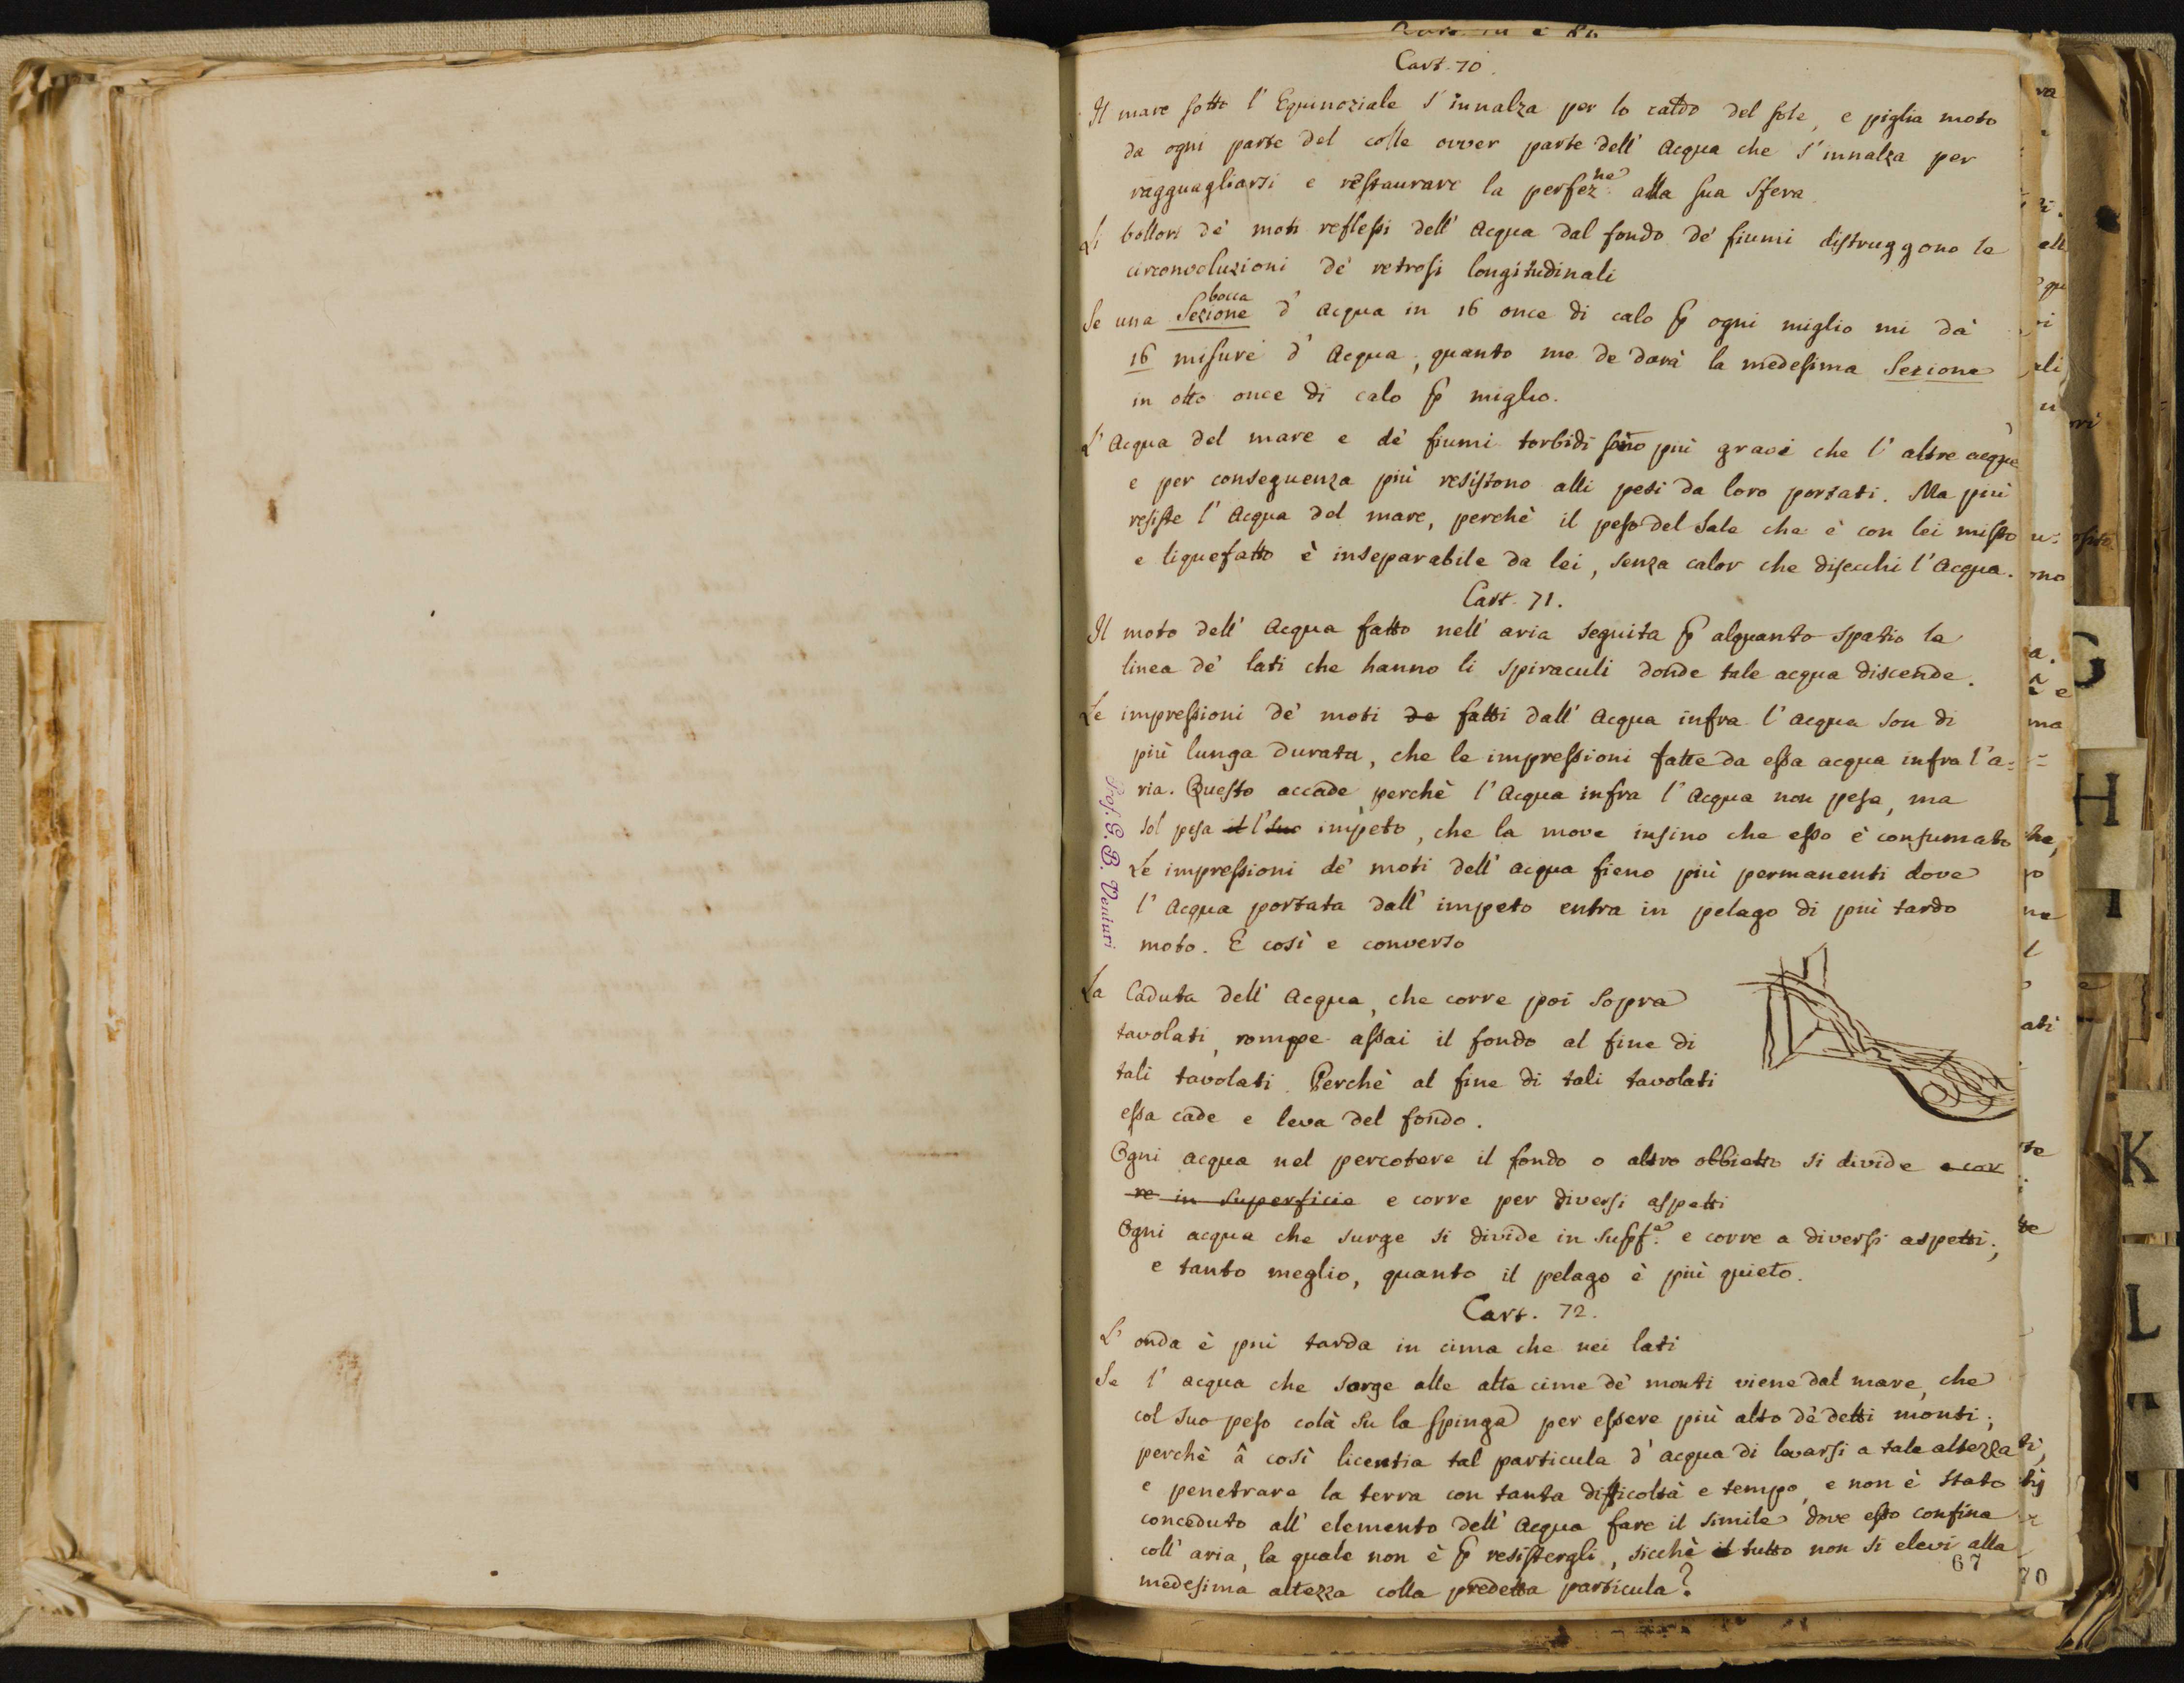 Cart. 70.
Il mare sotto l' Equinoziale s' innalza per lo caldo del sole, e piglia moto
da ogni parte del colle ovver parte dell' Acqua che s' innalza per
ragguagliarsi e restaurare la perfez.ne alla sua sfera
Li bollori de' moti reflessi dell' Acqua dal fondo de' fiumi distruggono le
circonvoluzioni de' retrosi longitudinali
bocca
Se una Sezione d' Acqua in 16 once di calo p ogni miglio mi dà
16 misure d' Acqua, quanto me de darà la medesima Sezione
in otto once di calo p miglio.
L' Acqua del mare e de' fiumi torbidi sono più gravi che l' altre acque
e per conseguenza più resistono alli pesi da loro portati. Ma più
resiste l' Acqua del mare, perchè il peso del Sale che è con lei misto
e liquefatto è inseparabile da lei, senza calor che disecchi l' Acqua.
Cart. 71.
Il moto dell' Acqua fatto nell' aria seguita p alquanto spatio la
linea de' lati che hanno li spiraculi donde tale acqua discende.
Le impressioni de' moti de fatti dall' Acqua infra l' acqua son di
più lunga durata, che le impressioni fatte da essa acqua infra l' a=
ria. Questo accade perchè l' Acqua infra l' Acqua non pesa, ma
sol pesa il l' suo impeto, che la move insino che esso è consumato
Le impressioni de' moti dell' acqua fieno più permanenti dove
l' Acqua portata dall' impeto entra in pelago di più tardo
moto. E così e converso
Prof. G. B. Venturi
La Caduta dell' Acqua, che corre poi sopra
tavolati, rompe assai il fondo al fine di
tali tavolati. Perchè al fine di tali tavolati
essa cade e leva del fondo.
Ogni acqua nel percotere il fondo o altro obbietto si divide e cor
re in superficie e corre per diversi aspetti
Ogni acqua che surge si divide in supf.a e corre a diversi aspetti;
e tanto meglio, quanto il pelago è più quieto.
Cart. 72.
L' onda è più tarda in cima che nei lati
Se l' acqua che sorge alle alte cime de' monti viene dal mare, che
col suo peso colà su la spinga per essere più alto de' detti monti;
perchè â così licentia tal particula d' acqua di levarsi a tale altezza
e penetrare la terra con tanta difficoltà e tempo, e non è stato
conceduto all' elemento dell' Acqua fare il simile dove esso confina
coll' aria, la quale non è p resistergli, sicchè il tutto non si elevi alla
medesima altezza colla predetta particula?
67
70
G
H
I
K
L